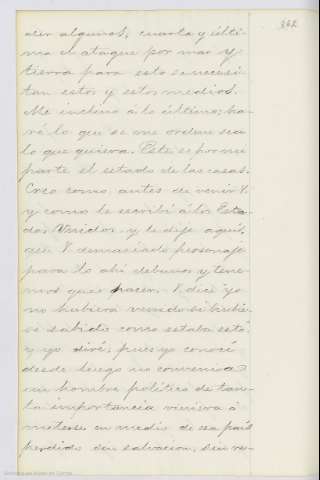 362
cer algunos; cuarta y últi-
ma el ataque por mar y
tierra para esto se necesi-
tan estos y estos medios.
Me inclino á lo último; ha-
ré lo que se me ordene sea
lo que quiera. Este es por mi
parte el estado de las cosas.
Creo como antes de venir V.
y como le escribí á los Esta-
dos Unidos y le dije aquí,
que V. demasiado personaje
para lo ahí debemos y tene-
mos que hacer. V. dice "yo
no hubiera venido si hubie-
se sabido como estaba esto"
y yo diré, pues yo conocí
desde luego no convenia
un hombre político de tan-
ta importancia viniera á
meterse en medio de ese país
perdido sin salvacion, sin re-